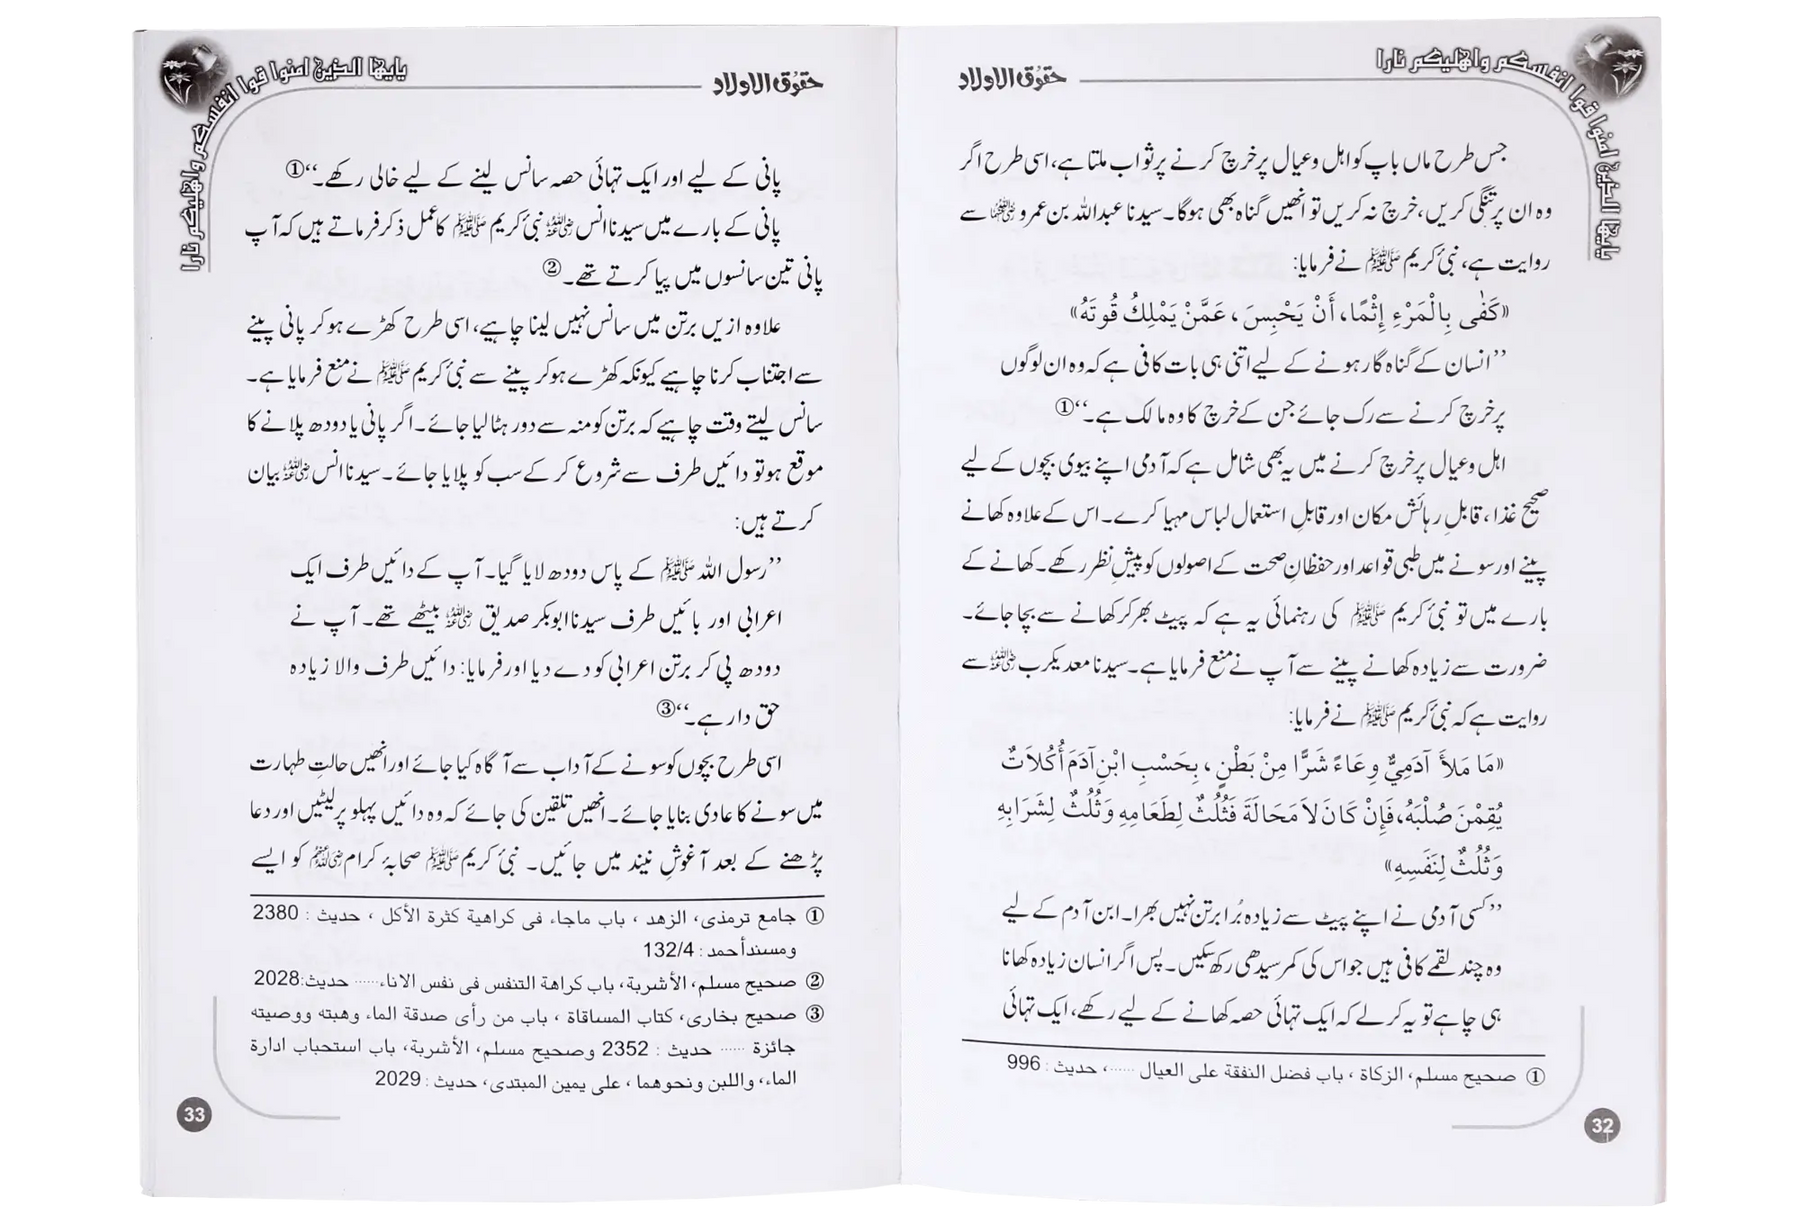 یایھا الذین امنوا قوا انفسکم واھلیکم نارا
حقوق الاولاد
جس طرح ماں باپ کو اہل و عیال پر خرچ کرنے پر ثواب ملتا ہے، اسی طرح اگر
وہ ان پر تنگی کریں، خرچ نہ کریں تو انھیں گناہ بھی ہوگا۔ سیدنا عبداللہ بن عمرو رضی اللہ عنہما سے
روایت ہے، نبیٔ کریم ﷺ نے فرمایا:
«كَفٰى بِالْمَرْءِ إِثْمًا، أَنْ يَحْبِسَ، عَمَّنْ يَمْلِكُ قُوتَهُ»
’’انسان کے گناہ گار ہونے کے لیے اتنی ہی بات کافی ہے کہ وہ ان لوگوں
پر خرچ کرنے سے رک جائے جن کے خرچ کا وہ مالک ہے۔‘‘①
اہل و عیال پر خرچ کرنے میں یہ بھی شامل ہے کہ آدمی اپنے بیوی بچوں کے لیے
صحیح غذا، قابلِ رہائش مکان اور قابلِ استعمال لباس مہیا کرے۔ اس کے علاوہ کھانے
پینے اور سونے میں طبی قواعد اور حفظانِ صحت کے اصولوں کو پیشِ نظر رکھے۔ کھانے کے
بارے میں تو نبیٔ کریم ﷺ کی رہنمائی یہ ہے کہ پیٹ بھر کر کھانے سے بچا جائے۔
ضرورت سے زیادہ کھانے پینے سے آپ نے منع فرمایا ہے۔ سیدنا معدیکرب رضی اللہ عنہ سے
روایت ہے کہ نبیٔ کریم ﷺ نے فرمایا:
«مَا مَلأَ آدَمِيٌّ وِعَاءً شَرًّا مِنْ بَطْنٍ، بِحَسْبِ ابْنِ آدَمَ أُكُلاَتٌ
يُقِمْنَ صُلْبَهُ، فَإِنْ كَانَ لاَ مَحَالَةَ فَثُلُثٌ لِطَعَامِهِ وَثُلُثٌ لِشَرَابِهِ
وَثُلُثٌ لِنَفَسِهِ»
’’کسی آدمی نے اپنے پیٹ سے زیادہ بُرا برتن نہیں بھرا۔ ابن آدم کے لیے
وہ چند لقمے کافی ہیں جو اس کی کمر سیدھی رکھ سکیں۔ پس اگر انسان زیادہ کھانا
ہی چاہے تو یہ کرلے کہ ایک تہائی حصہ کھانے کے لیے رکھے، ایک تہائی
① صحیح مسلم، الزکاة، باب فضل النفقة علی العیال ......، حدیث : 996
32
یایھا الذین امنوا قوا انفسکم واھلیکم نارا
حقوق الاولاد
پانی کے لیے اور ایک تہائی حصہ سانس لینے کے لیے خالی رکھے۔‘‘①
پانی کے بارے میں سیدنا انس رضی اللہ عنہ نبیٔ کریم ﷺ کا عمل ذکر فرماتے ہیں کہ آپ
پانی تین سانسوں میں پیا کرتے تھے۔②
علاوہ ازیں برتن میں سانس نہیں لینا چاہیے، اسی طرح کھڑے ہو کر پانی پینے
سے اجتناب کرنا چاہیے کیونکہ کھڑے ہو کر پینے سے نبیٔ کریم ﷺ نے منع فرمایا ہے۔
سانس لیتے وقت چاہیے کہ برتن کو منہ سے دور ہٹا لیا جائے۔ اگر پانی یا دودھ پلانے کا
موقع ہو تو دائیں طرف سے شروع کر کے سب کو پلایا جائے۔ سیدنا انس رضی اللہ عنہ بیان
کرتے ہیں:
’’رسول اللہ ﷺ کے پاس دودھ لایا گیا۔ آپ کے دائیں طرف ایک
اعرابی اور بائیں طرف سیدنا ابوبکر صدیق رضی اللہ عنہ بیٹھے تھے۔ آپ نے
دودھ پی کر برتن اعرابی کو دے دیا اور فرمایا: دائیں طرف والا زیادہ
حق دار ہے۔‘‘③
اسی طرح بچوں کو سونے کے آداب سے آگاہ کیا جائے اور انھیں حالتِ طہارت
میں سونے کا عادی بنایا جائے۔ انھیں تلقین کی جائے کہ وہ دائیں پہلو پر لیٹیں اور دعا
پڑھنے کے بعد آغوشِ نیند میں جائیں۔ نبیٔ کریم ﷺ صحابۂ کرام رضی اللہ عنہم کو ایسے
① جامع ترمذی، الزهد ، باب ماجاء فی کراهیة کثرة الأکل ، حدیث : 2380
ومسندأحمد : 132/4
② صحیح مسلم، الأشربة، باب کراهة التنفس فی نفس الاناء...... حدیث:2028
③ صحیح بخاری، کتاب المساقاة ، باب من رأی صدقة الماء وهبته ووصیته
جائزة ...... حدیث : 2352 وصحیح مسلم، الأشربة، باب استحباب ادارة
الماء، واللبن ونحوهما ، علی یمین المبتدی، حدیث : 2029
33